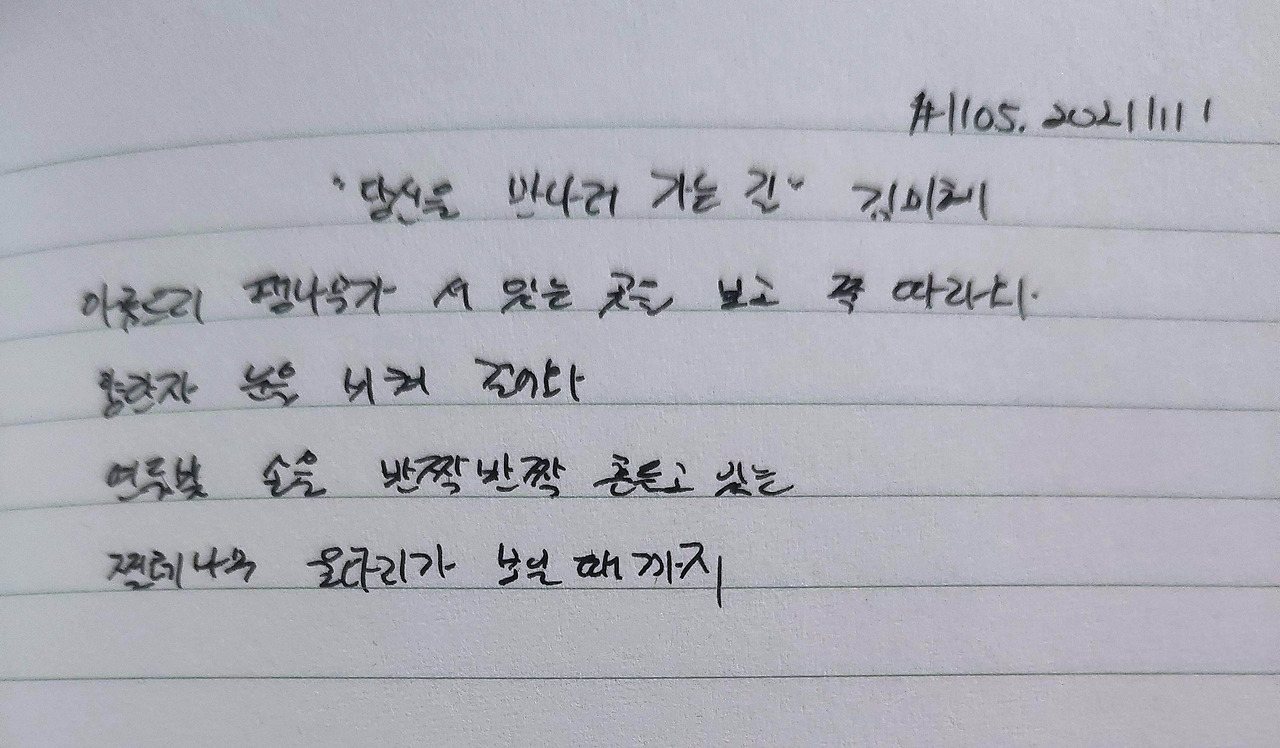 #1105. 20211111
"당신을 만나러 가는 길" 김미혜
아름드리 팽나무가 서 있는 곳을 보고 쭉 따라와.
눈을 비켜 걸어와
연둣빛 손을 반짝반짝 흔들고 있는
찔레나무 울타리가 보일 때까지